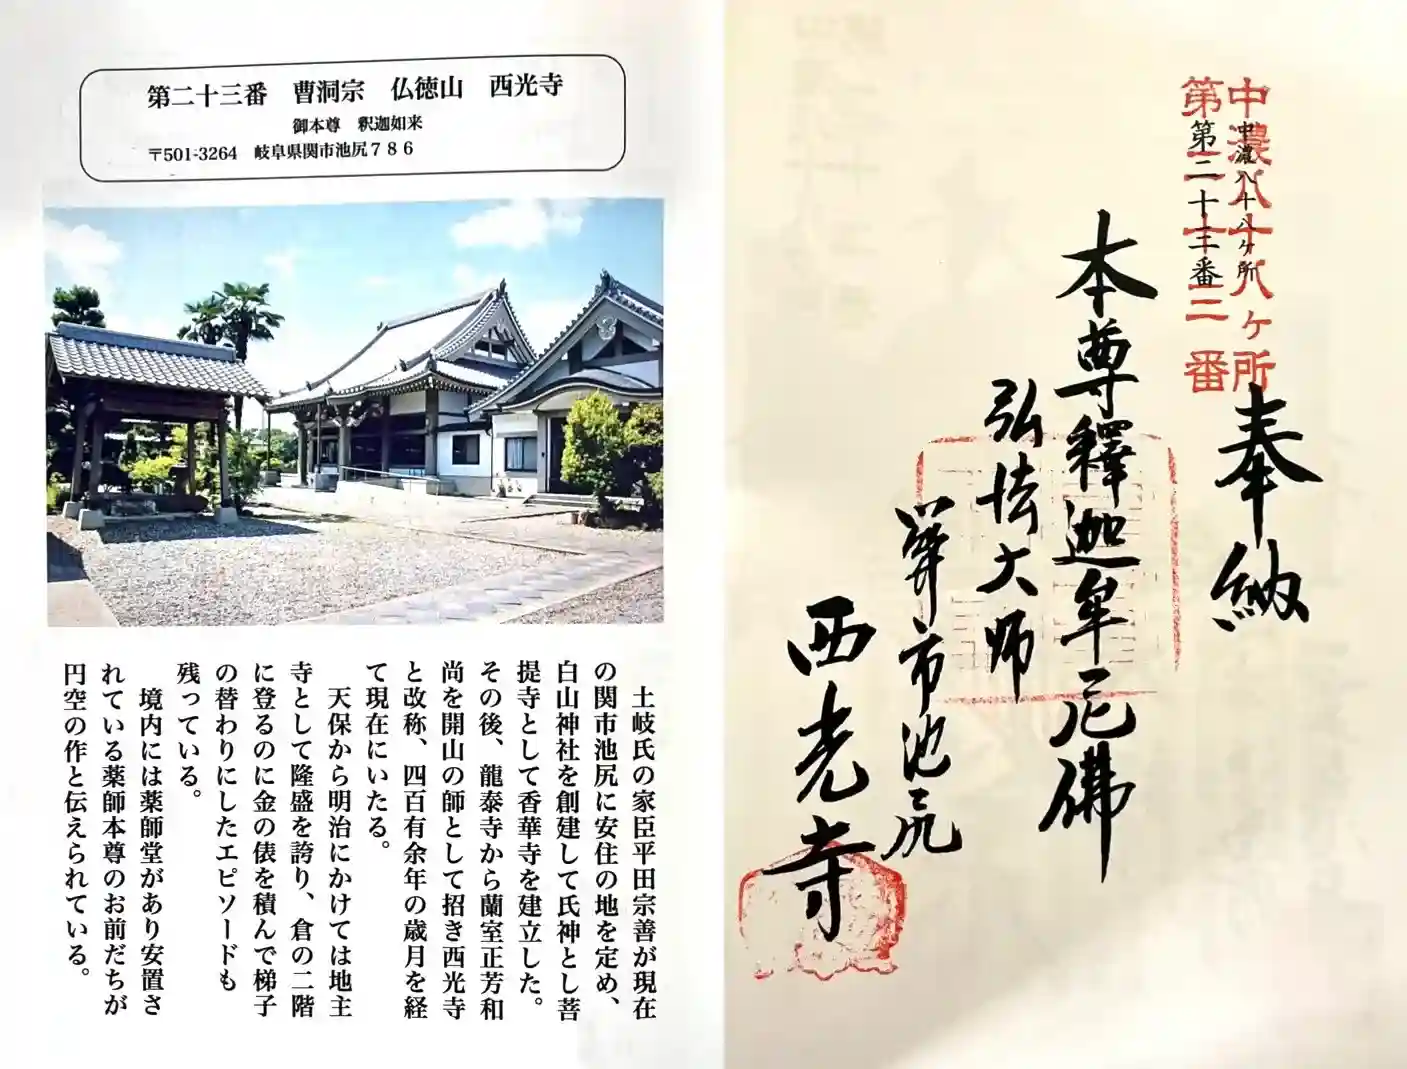 第二十三番　曹洞宗　仏徳山　西光寺
御本尊　釈迦如来
〒501-3264　岐阜県関市池尻７８６
土岐氏の家臣平田宗善が現在
の関市池尻に安住の地を定め、
白山神社を創建して氏神とし菩
提寺として香華寺を建立した。
その後、龍泰寺から蘭室正芳和
尚を開山の師として招き西光寺
と改称、四百有余年の歳月を経
て現在にいたる。
天保から明治にかけては地主
寺として隆盛を誇り、倉の二階
に登るのに金の俵を積んで梯子
の替わりにしたエピソードも
残っている。
境内には薬師堂があり安置さ
れている薬師本尊のお前だちが
円空の作と伝えられている。
中濃八十八ヶ所
第二十三番
中濃八十八ヶ所
第二十三番
奉納
本尊釋迦牟尼佛
弘法大师
市池尻
西光寺